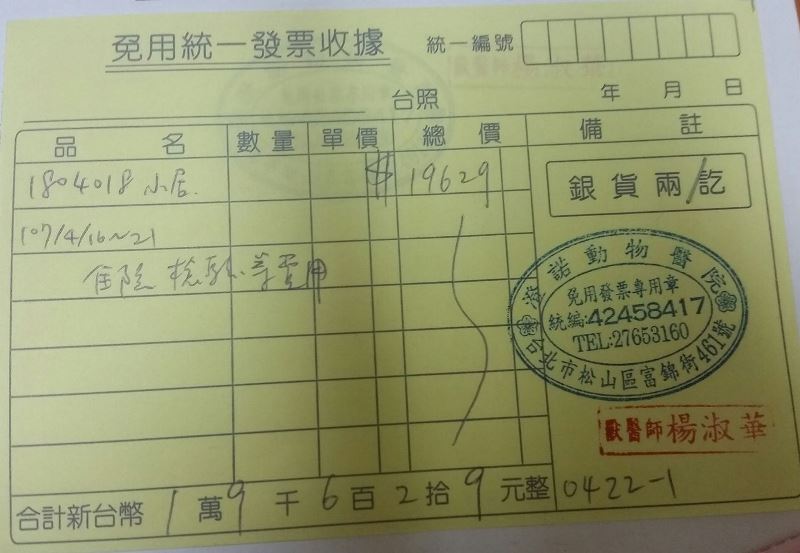 免用統一發票收據
統一編號
台照
年 月 日
品名 數量 單價 總價 備註
1804018 小居 $ 19629
銀貨兩訖
107/4/16~21
住院 檢驗 等費用
澄諾動物醫院
免用發票專用章
統編:42458417
TEL:27653160
台北市松山區富錦街461號
獸醫師 楊淑華
合計新台幣 1 萬 9 千 6 百 2 拾 9 元整 0422-1